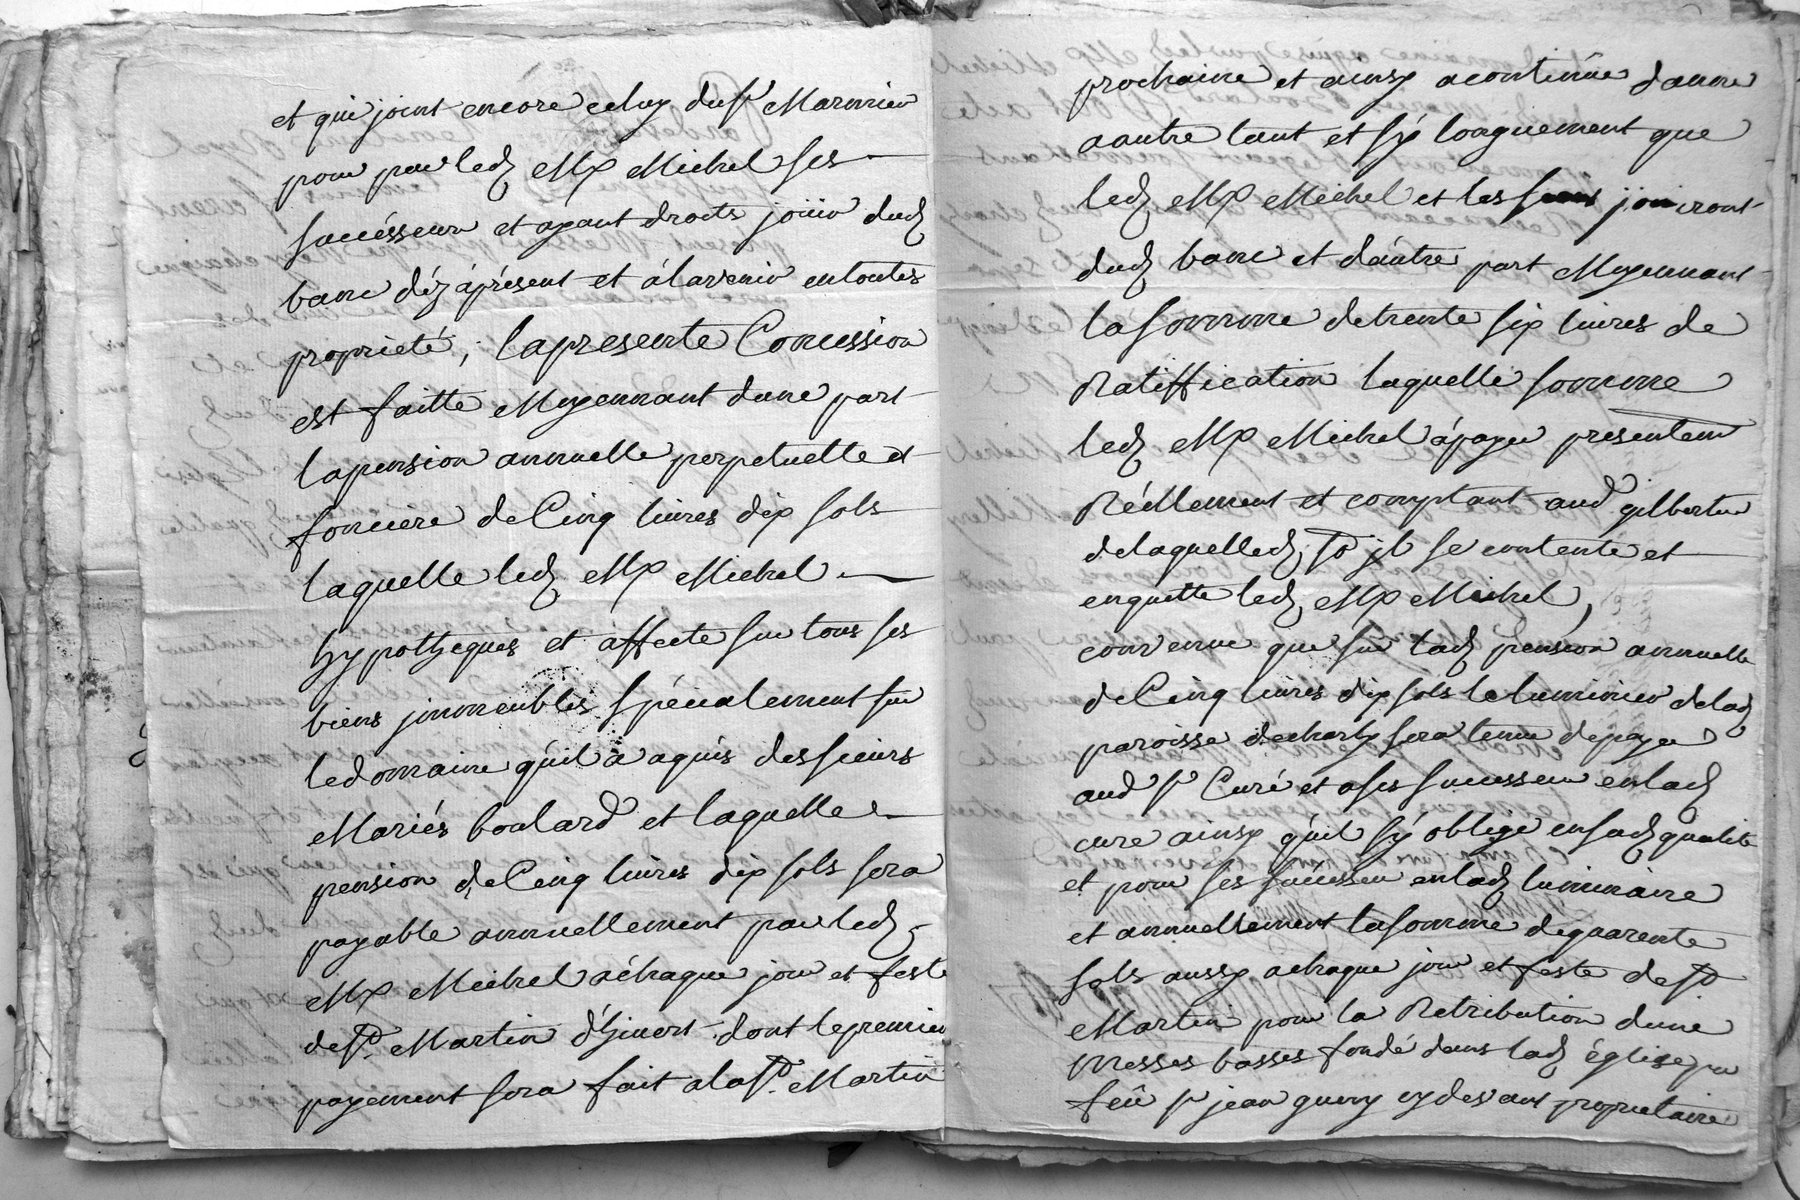 et qui joint encore celuy du sr Marmier
pour par led. Me Michel ses
succésseur et ayant droits joüir dud.
banc déz áprésent et álavenir entoutes
proprieté, lapresente Concession
est faitte Moyennant dune part
lapension annuelle perpetuelle et
fonciére de Cinq livres dix sols
laquelle led. Me Michel
hypotheques et affecte sur tous ses
biens jmmeubles spécialement sur
ledomaine qu'il à aquis des sieurs
Mariés boulard et laquelle
pension de Cinq livres dix sols sera
payable annuellement par led.
Me Michel áchaque jour et feste
de st. Martin d'hivert dont lepremier
payement sera fait ala st. Martin
prochaine et ainsy acontinüer danne
aautre tant et sy longuement que
led. Me Michel et les siens joiiront
dud. banc et dáutre part Moyennant
lasomme detrente six livres de
Ratiffication laquelle somme
led. Me Michel ápayer presentem
Réellement et comptant aud gilbertu
delaquelle jl se contente et
enquitte led. Me Michel,
convenue que sur lad. pension annuelle
de Cinq livres dix sols le luminier delad.
paroisse sera tenu depayer
aud sr Curé et ases successeur enlad.
cure ainsy quil sÿ oblige ensad. qualité
et pour ses succésseur enlad. luminaire
et annuellement lasomme dequarente
sols aussy achaque jour et feste de st
Martin pour la Retribution dune
Messes basses fondé dans lad. église par
feü sr jean cydevant proprietaire